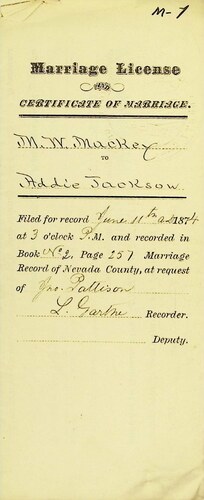 M-7
Marriage License
AND
CERTIFICATE OF MARRIAGE.
M. W. Mackey
TO
Addie Jackson
Filed for record June 11th a.d. 1874
at 3 o'clock P.M. and recorded in
Book No 2, Page 257 Marriage
Record of Nevada County, at request
of Jno. Pattison
L. Garthe Recorder.
Deputy.